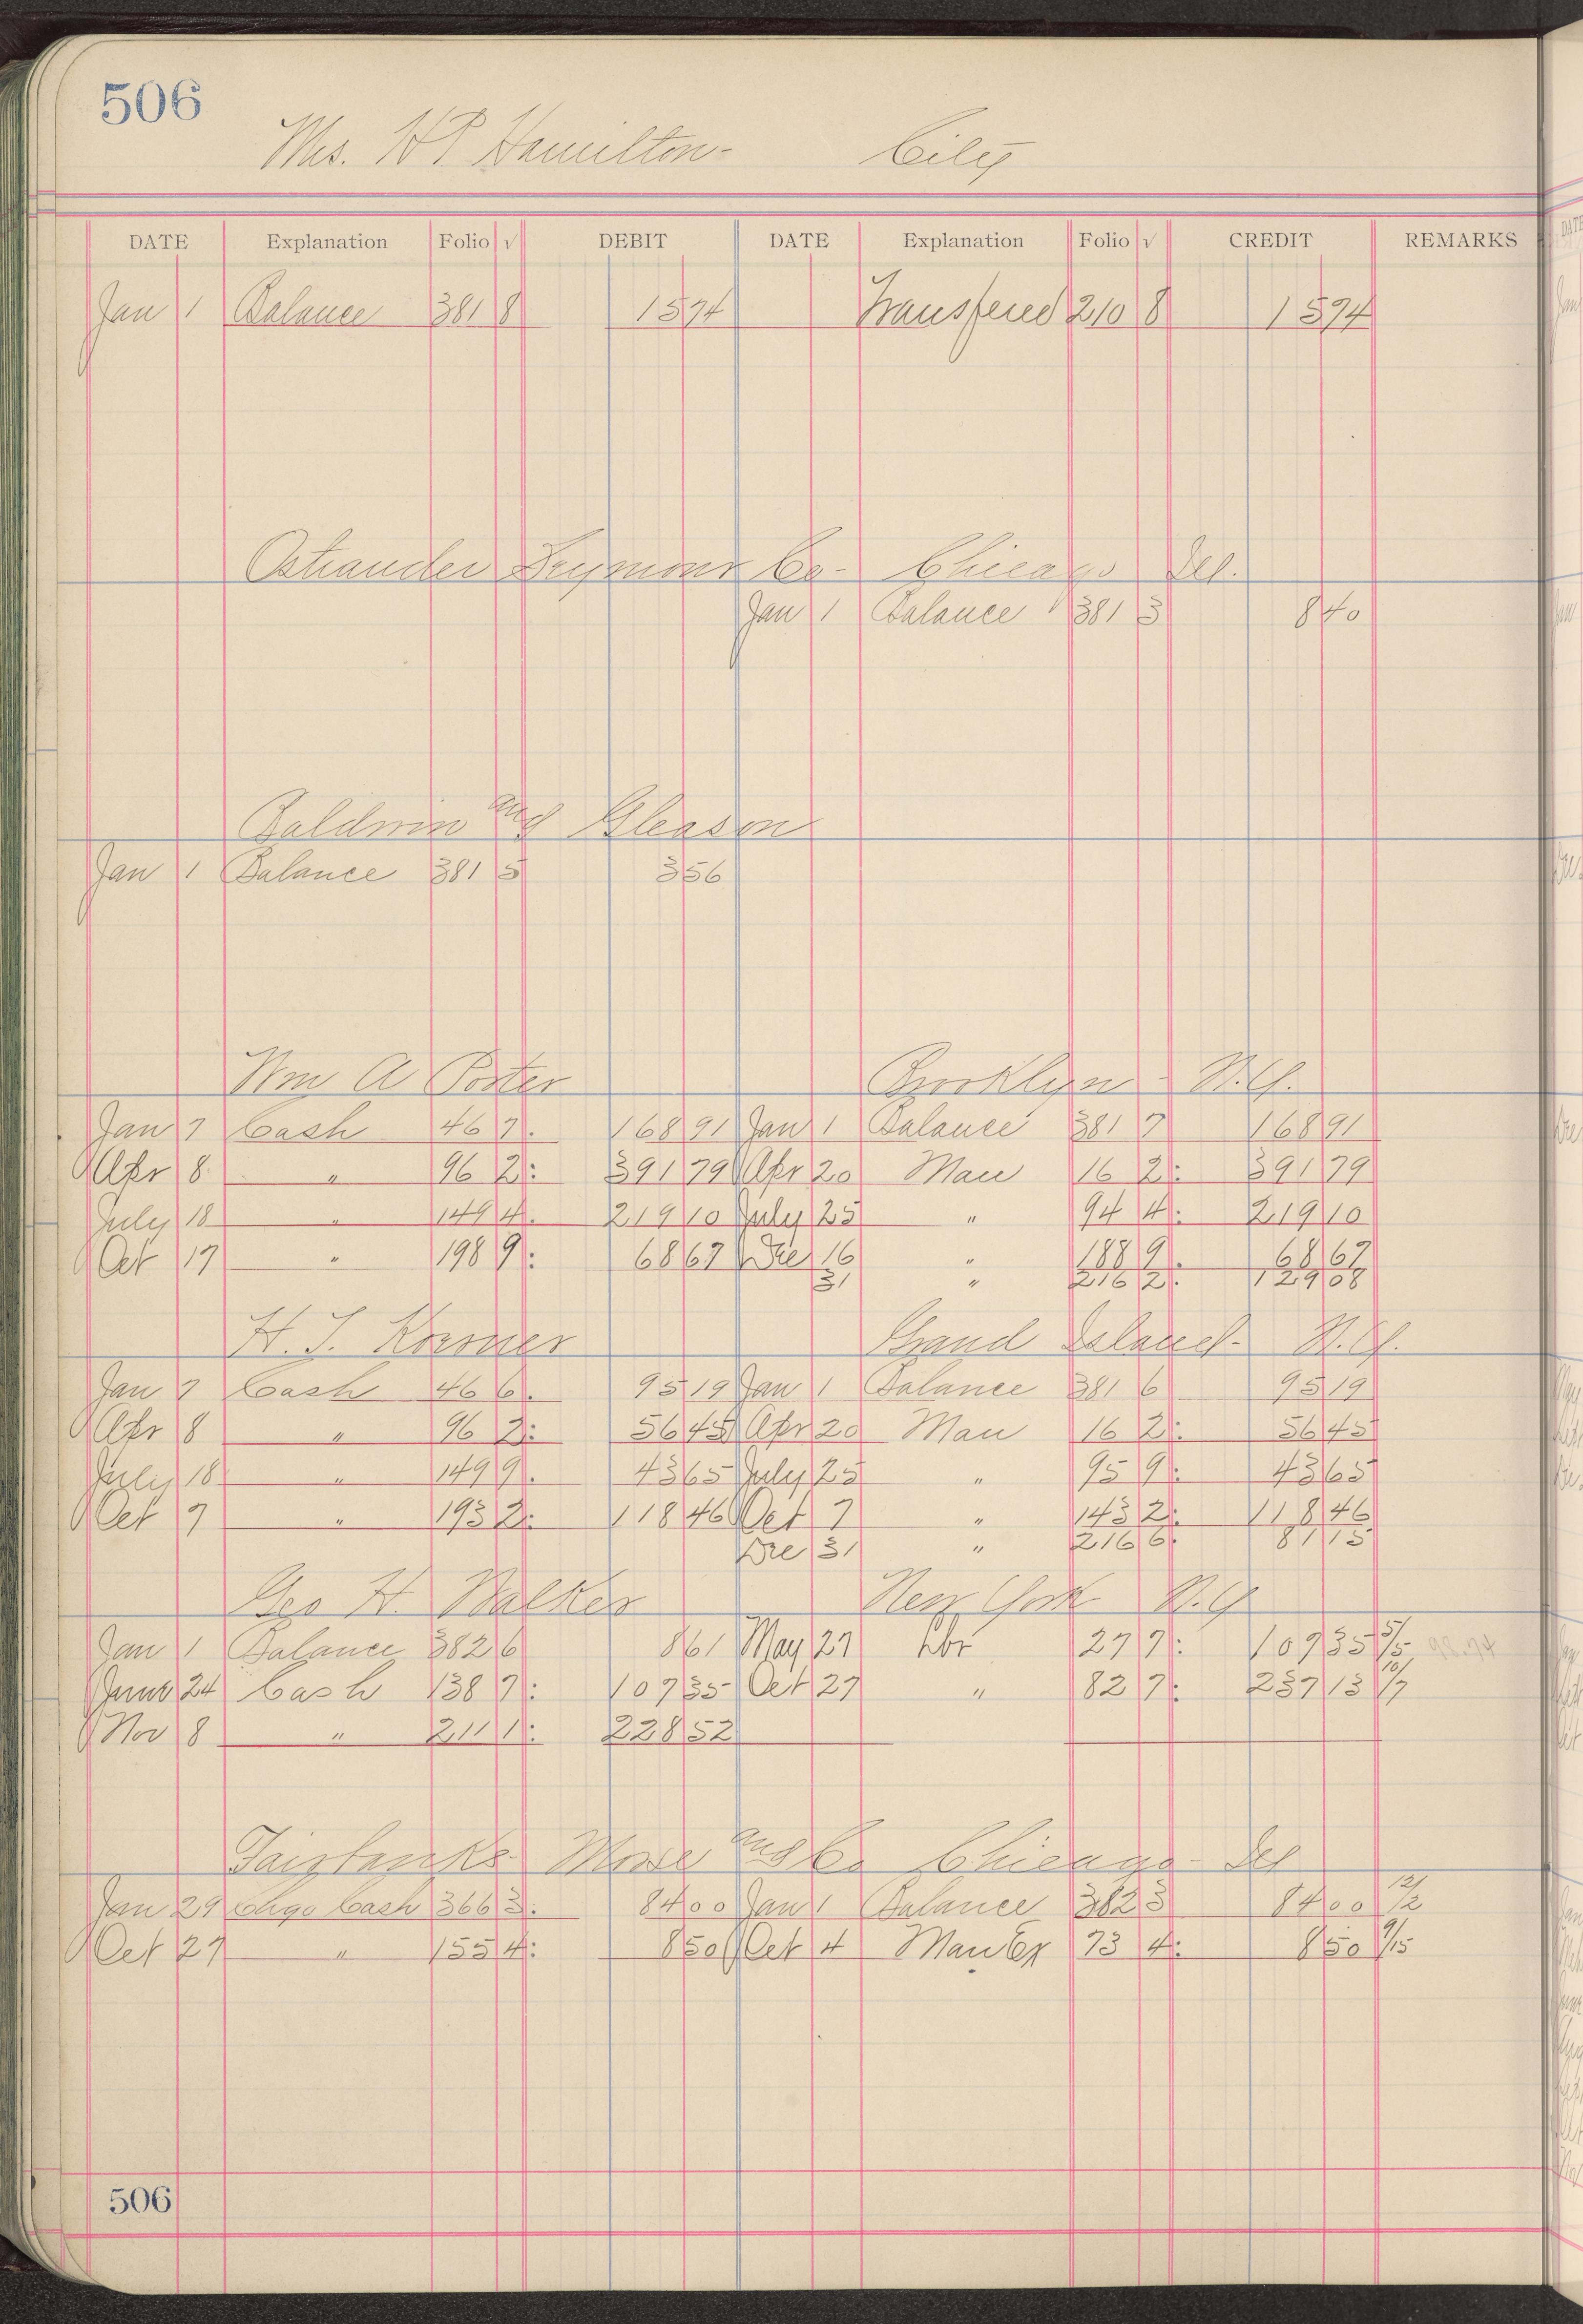 506
Mrs. H P Hamilton- City
DATE Explanation Folio √ DEBIT DATE Explanation Folio √ CREDIT REMARKS
Jan 1 Balance 381 8 15 74 Transfered 210 8 15 74
Ostrander Seymour Co- Chicago Ill.
Jan 1 Balance 381 3 8 40
Baldwin and Gleason
Jan 1 Balance 381 5 3 56
Wm A Porter Brooklyn - N.Y.
Jan 7 Cash 46 7. 168 91 Jan 1 Balance 381 7 168 91
Apr 8 " 96 2: 391 79 Apr 20 Man 16 2: 391 79
July 18 " 149 4. 219 10 July 25 " 94 4: 219 10
Oct 17 " 198 9: 68 67 Dec 16 " 188 9. 68 67
31 " 216 2. 129 08
H. T. Grand Island- N.Y.
Jan 7 Cash 46 6. 95 19 Jan 1 Balance 381 6 95 19
Apr 8 " 96 2: 56 45 Apr 20 Man 16 2: 56 45
July 18 " 149 9. 43 65 July 25 " 95 9: 43 65
Oct 7 " 193 2: 118 46 Oct 7 " 143 2: 118 46
Dec 31 " 216 6: 81 15
Geo H. Walker New York N.Y
Jan 1 Balance 382 6 8 61 May 27 Lbr 27 7: 107 35 5/5 98.74
June 24 Cash 138 7: 107 35 Oct 27 " 82 7: 237 13 10/7
Nov 8 " 211 1: 228 52
Fairbanks Morse and Co Chicago- Ill
Jan 29 Chgo Cash 366 3. 84 00 Jan 1 Balance 382 3 84 00 12/2
Oct 27 " 155 4: 8 50 Oct 4 Man Ex 73 4: 8 50 9/15
506